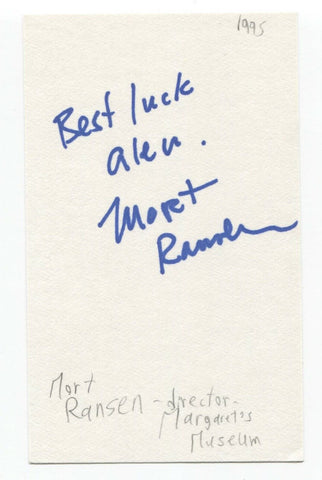 1995
Best luck
alen.
Mort
Ransen
Mort
Ransen - director-
Margaret's
Museum